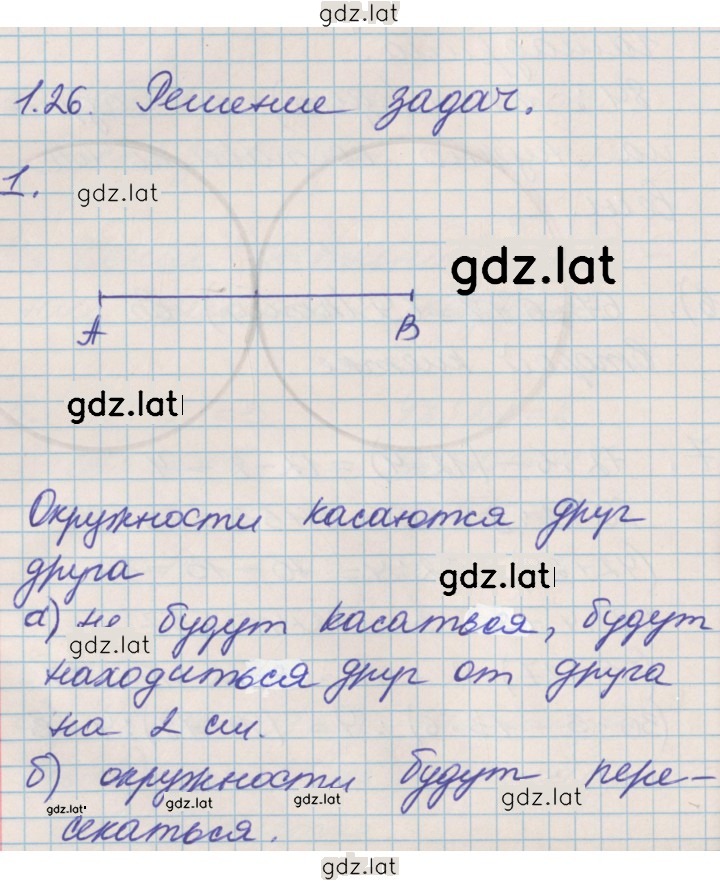 gdz.lat
1.26. Решение задач.
1.
gdz.lat
gdz.lat
A B
gdz.lat
Окружности касаются друг
друга
gdz.lat
а) не будут касаться, будут
gdz.lat
находиться друг от друга
на 2 см.
б) окружности будут пере-
gdz.lat gdz.lat gdz.lat gdz.lat
секаться.
gdz.lat